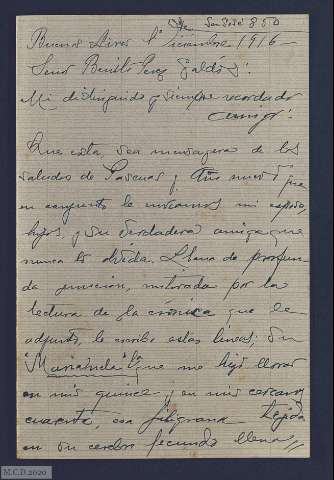 San José 850
Buenos Aires 1° Diciembre 1916 —
Señor Benito Perez Galdós:
Mi distinguido y siempre recordado
amigo:
Que esta, sea mensajera de los
saludos de Pascuas y Año nuevo que
en conjunto le enviamos mi esposo,
hijos, y su verdadera amiga que
nunca lo olvida. Llena de profun-
da emoción, motivada por la
lectura de la crónica que le
adjunto, le escribo estas lineas; Su
"Marianela" la que me hizo llorar
en mis quince y en mis cercanos
cuarenta, esa filigrana tejida
en su cerebro fecundo llena
M.C.D 2020